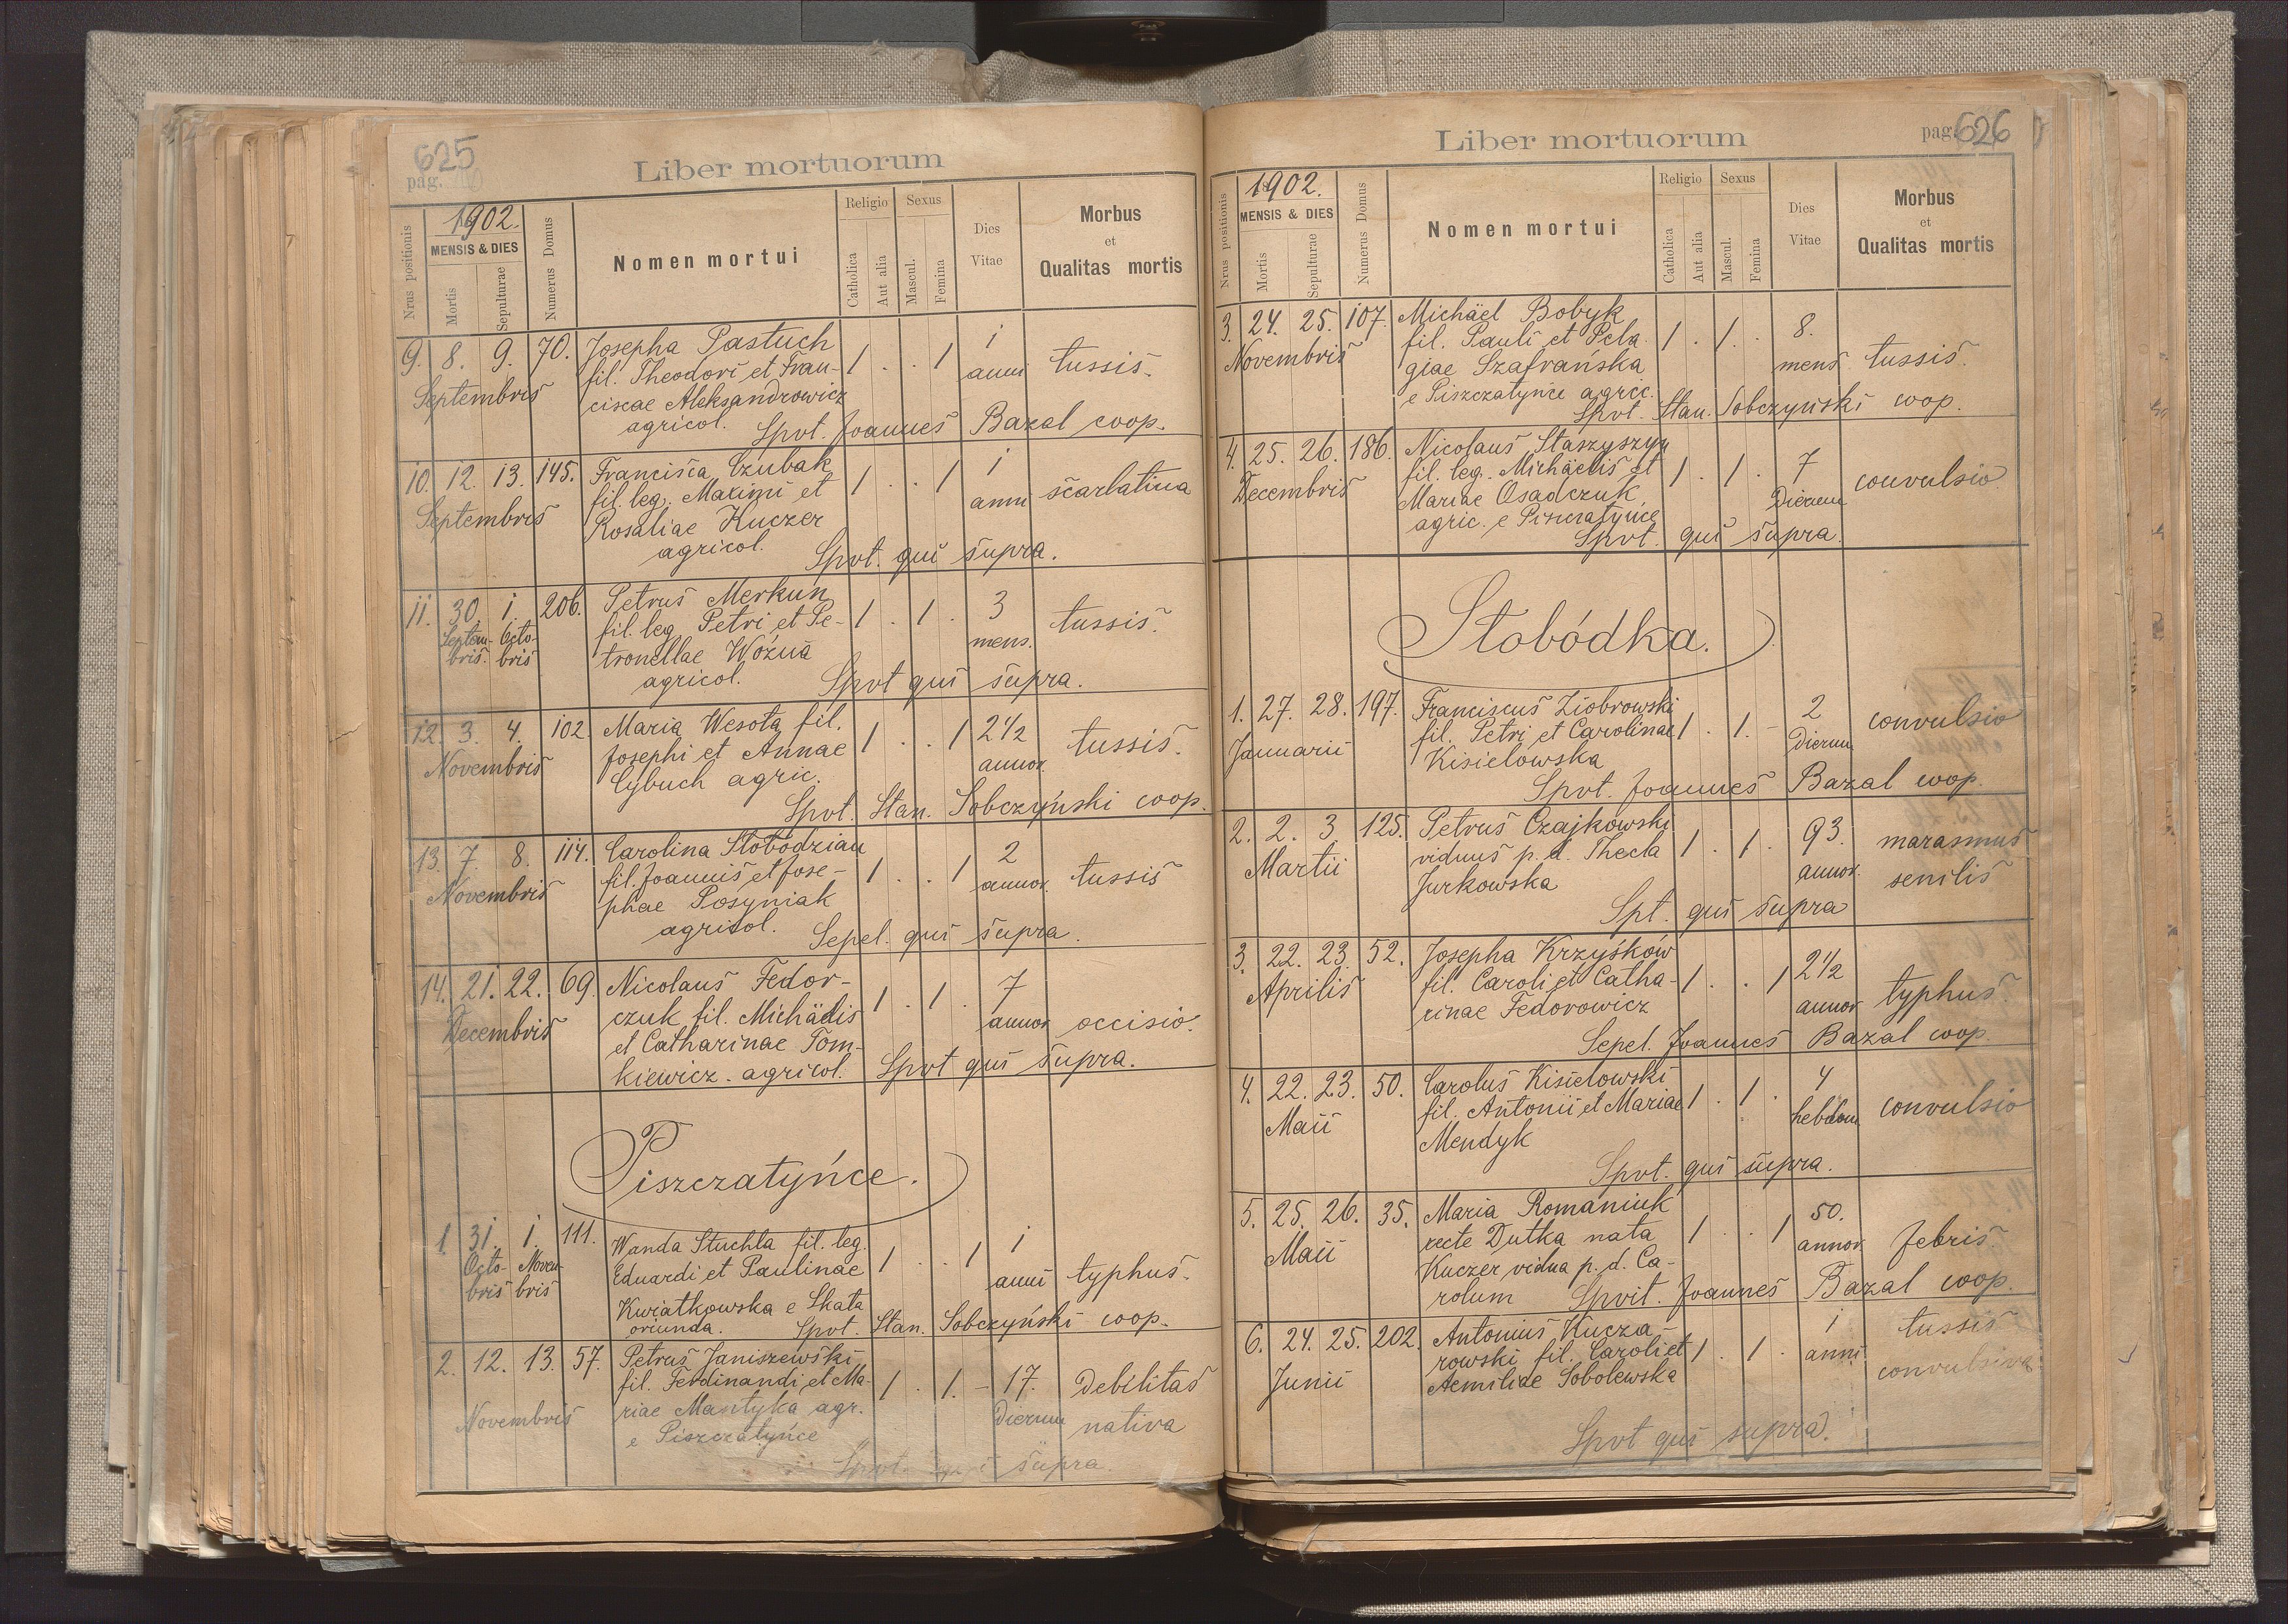 625
pag.
Liber mortuorum
Nrus positionis
1902.
MENSIS & DIES
Mortis
Sepulturae
Numerus Domus
Nomen mortui
Religio
Catholica
Aut alia
Sexus
Mascul.
Femina
Dies
Vitae
Morbus
et
Qualitas mortis
9. 8. 9. 70. Josepha Pastuch
fil. Theodori et Fran- 1 . . 1 1 tussis.
Septembris ciscae Aleksandrowicz anni
agricol. Spvt. Joannes Bazal coop.
10. 12. 13. 145. Francisca Czubak 1
fil. leg. Maximi et 1 . . 1 anni scarlatina
Septembris Rosaliae Kuczer
agricol. Spvt. qui supra.
11. 30. 1. 206. Petrus Merkun 3
Septem- Octo- fil. leg. Petri et Pe- 1 . 1 . mens. tussis.
bris. bris tronellae Woźna
agricol. Spvt qui supra.
12. 3. 4. 102. Maria Wesoła fil. 2 1/2
Novembris Josephi et Annae 1 . . 1 annor. tussis.
Cybuch agric.
Spvt. Stan. Sobczyński coop.
13. 7. 8. 114. Carolina Słobodzian 2
fil. Joannis et Jose- 1 . . 1 annor. tussis
Novembris phae Posyniak
agricol. Sepel. qui supra.
14. 21. 22. 69. Nicolaus Fedor- 7
czuk fil. Michäelis 1 . 1 . annor. occisio.
Decembris et Catharinae Tom-
kiewicz. agricol. Spvt qui supra.
Piszczatyńce.
1. 31. 1. 111. Wanda Stuchła fil. leg. 1
Octo- Novem- Eduardi et Paulinae 1 . . 1 anni typhus.
bris bris Kwiatkowska e Skała
oriunda. Spvt. Stan. Sobczyński coop.
2. 12. 13. 57. Petrus Janiszewski
fil. Ferdinandi et Ma- 1 . 1. - 17. Debilitas
Novembris riae Mantyka agr. Dierum nativa
e Piszczatyńce
Spvt. qui supra.
Liber mortuorum
pag. 626
Nrus positionis
1902.
MENSIS & DIES
Mortis
Sepulturae
Numerus Domus
Nomen mortui
Religio
Catholica
Aut alia
Sexus
Mascul.
Femina
Dies
Vitae
Morbus
et
Qualitas mortis
3. 24. 25. 107. Michäel Bobyk
fil. Pauli et Pela- 1 . 1. . 8.
Novembris giae Szafrańska mens. tussis.
e Piszczatyńce agric.
Spvt. Stan. Sobczyński coop.
4. 25. 26. 186. Nicolaus Staszyszyn
fil. leg. Michäelis et 1 . 1 . 7 convulsio
Decembris Mariae Osadczuk Dierum
agric. e Piszczatyńce
Spvt. qui supra.
Słobódka.
1. 27. 28. 197. Franciscus Ziobrowski 2
fil. Petri et Carolinae 1 . 1. - Dierum convulsio
Januarii Kisielowska
Spvt. Joannes Bazal coop.
2. 2. 3. 125. Petrus Czajkowski 93. marasmus
viduus p. d. Thecla 1 . 1 . annor. senilis
Martii Jurkowska
Spt. qui supra
3. 22. 23. 52. Josepha Krzyśków 2 1/2
fil. Caroli et Catha- 1 . . 1 annor. typhus.
Aprilis rinae Fedorowicz
Sepel. Joannes Bazal coop.
4. 22. 23. 50. Carolus Kisielowski 4
fil. Antonii et Mariae 1 . 1 . hebdom. convulsio
Maii Mendyk
Spvt. qui supra.
5. 25. 26. 35. Maria Romaniuk 50.
recte Dutka nata 1 . . 1 annor. febris
Maii Kuczer vidua p. d. Ca-
rolum Spvit. Joannes Bazal coop.
6. 24. 25. 202. Antonius Kucza- 1 tussis
rowski fil. Caroli et 1 . 1 . anni convulsiva.
Junii Aemiliae Sobolewska
Spvt qui supra.